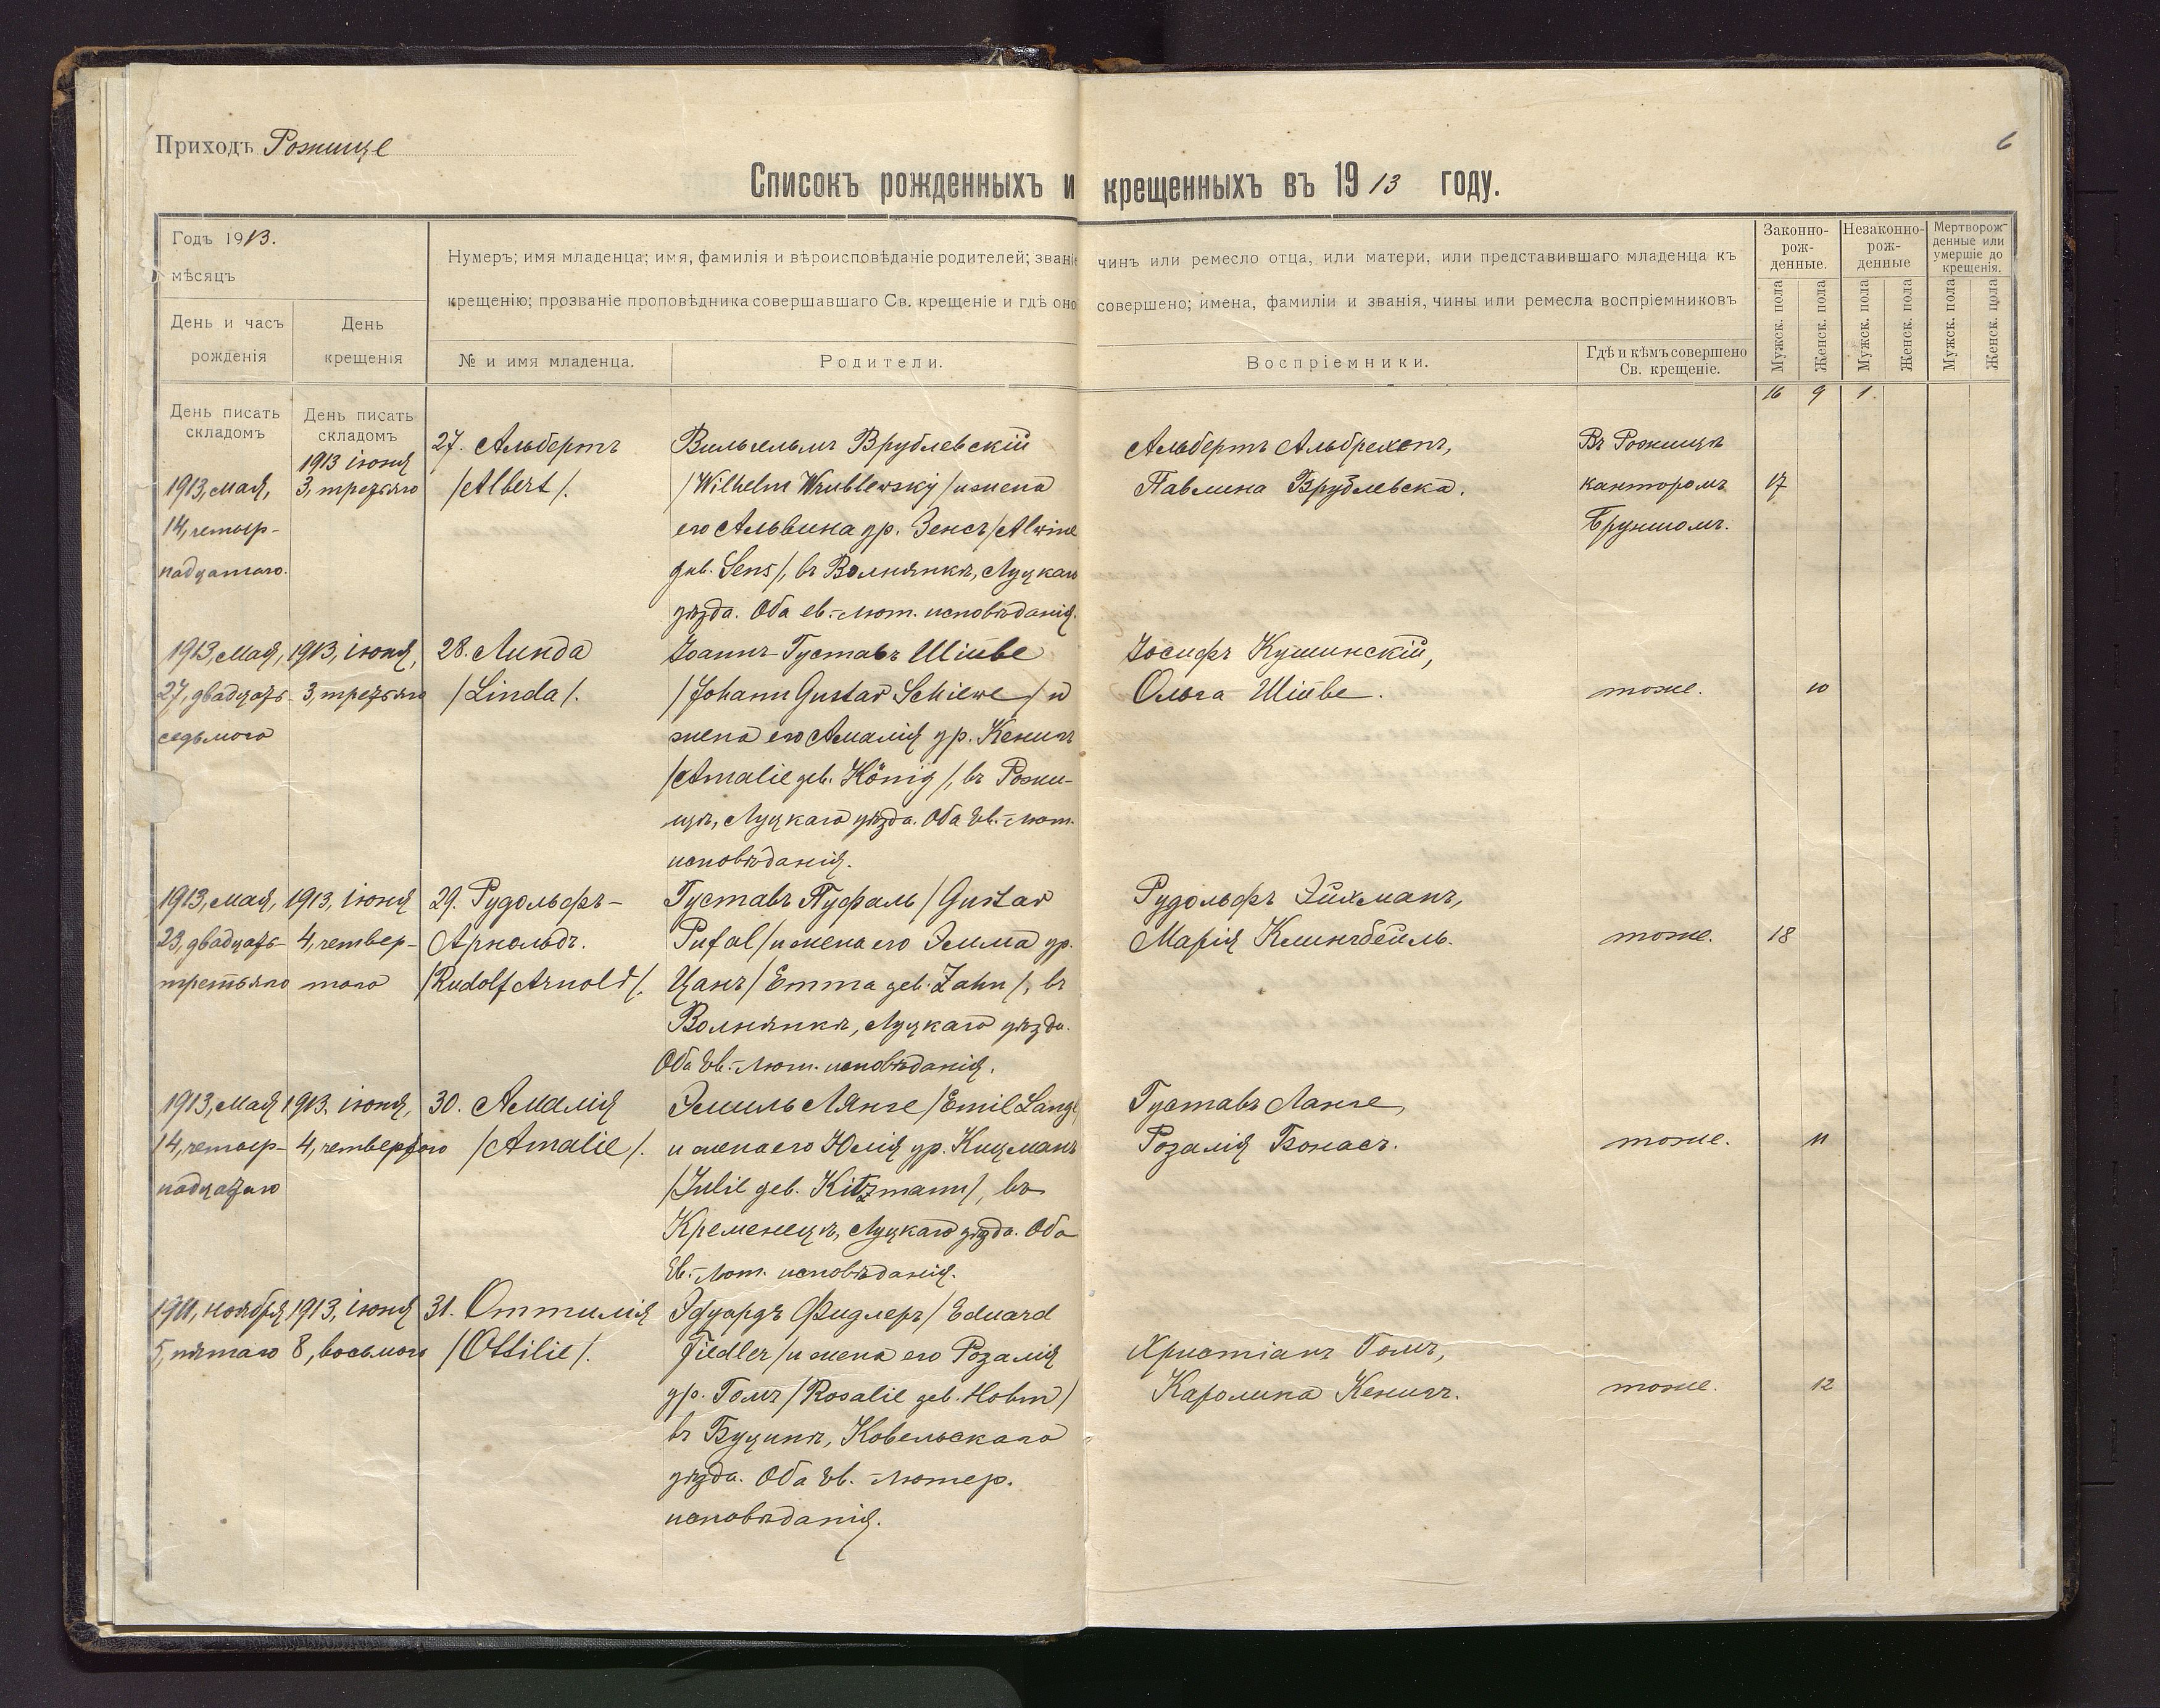 Приходъ Рожище
6
Списокъ рожденныхъ и крещенныхъ въ 1913 году.
Годъ 1913.
мѣсяцъ
День и часъ
рожденія
День
крещенія
Нумеръ; имя младенца; имя, фамилія и вѣроисповѣданіе родителей; званіе чинъ или ремесло отца, или матери, или представившаго младенца къ
крещенію; прозваніе проповѣдника совершавшаго Св. крещеніе и гдѣ оно совершено; имена, фамиліи и званія, чины или ремесла воспріемниковъ
№ и имя младенца.
Родители.
Воспріемники.
Гдѣ и кѣмъ совершено
Св. крещеніе.
Законно-
рож-
денные.
Незаконно-
рож-
денные
Мертворож-
денные или
умершіе до
крещенія.
Мужск. пола
Женск. пола
Мужск. пола
Женск. пола
Мужск. пола
Женск. пола
16 9 1.
День писать
складомъ
День писать
складомъ
1913, мая,
14, четыр-
надцатаго.
1913 іюня
3, третьяго
27. Альбертъ
/Albert/.
Вильгельмъ Врублевскій
/Wilhelm Wrublewsky/ и жена
его Альвина ур. Зенсъ /Alwine
geb. Sens/, въ Волнянкѣ, Луцкаго
уѣзда. Оба ев.-лют. исповѣданія.
Альбертъ Альбрехтъ,
Павлина Врублевска.
Въ Рожищѣ
канторомъ
Бруншомъ.
17
1913, мая,
27, двадцать
седьмого
1913, іюня,
3, третьяго
28. Линда
/Linda/.
Іоаннъ Густавъ Шиве
/Johann Gustav Schiewe/ и
жена его Амалія ур. Кенигъ
/Amalie geb. König/, въ Рожи-
щѣ, Луцкаго уѣзда. Оба Ев.-лют.
исповѣданія.
Іосифъ Кушинскій,
Ольга Шиве.
тоже.
10
1913, мая,
23, двадцать
третьяго
1913, іюня
4, четвер-
таго
29. Рудольфъ-
Арнольдъ.
/Rudolf Arnold/.
Густавъ Пуфаль /Gustav
Pufal/ и жена его Эмма ур.
Цанъ /Emma geb. Zahn/, въ
Волнянкѣ, Луцкаго уѣзда.
Оба Ев.-лют. исповѣданія.
Рудольфъ Эйхманъ,
Марія Клингбейль.
тоже.
18
1913, мая
14, четыр-
надцатаго
1913. іюня,
4, четвертаго
30. Амалія
/Amalie/.
Эмиль Лянге /Emil Lange
и жена его Юлія ур. Кицманъ
/Julie geb. Kitzmann/, въ
Кременецѣ, Луцкаго уѣзда. Оба
Ев.-лют. исповѣданія.
Густавъ Ланге,
Розалія Бонасъ.
тоже.
11
1911, ноября
5, пятаго
1913, іюня
8, восьмого
31. Оттилія
/Ottilie/.
Эдуардъ Фидлеръ /Eduard
Fiedler/ и жена его Розалія
ур. Гомъ /Rosalie geb. Hohm/
въ Буцинѣ, Ковельскаго
уѣзда. Оба Ев. лютер.
исповѣданія.
Христіанъ Гомъ,
Каролина Кенигъ.
тоже.
12